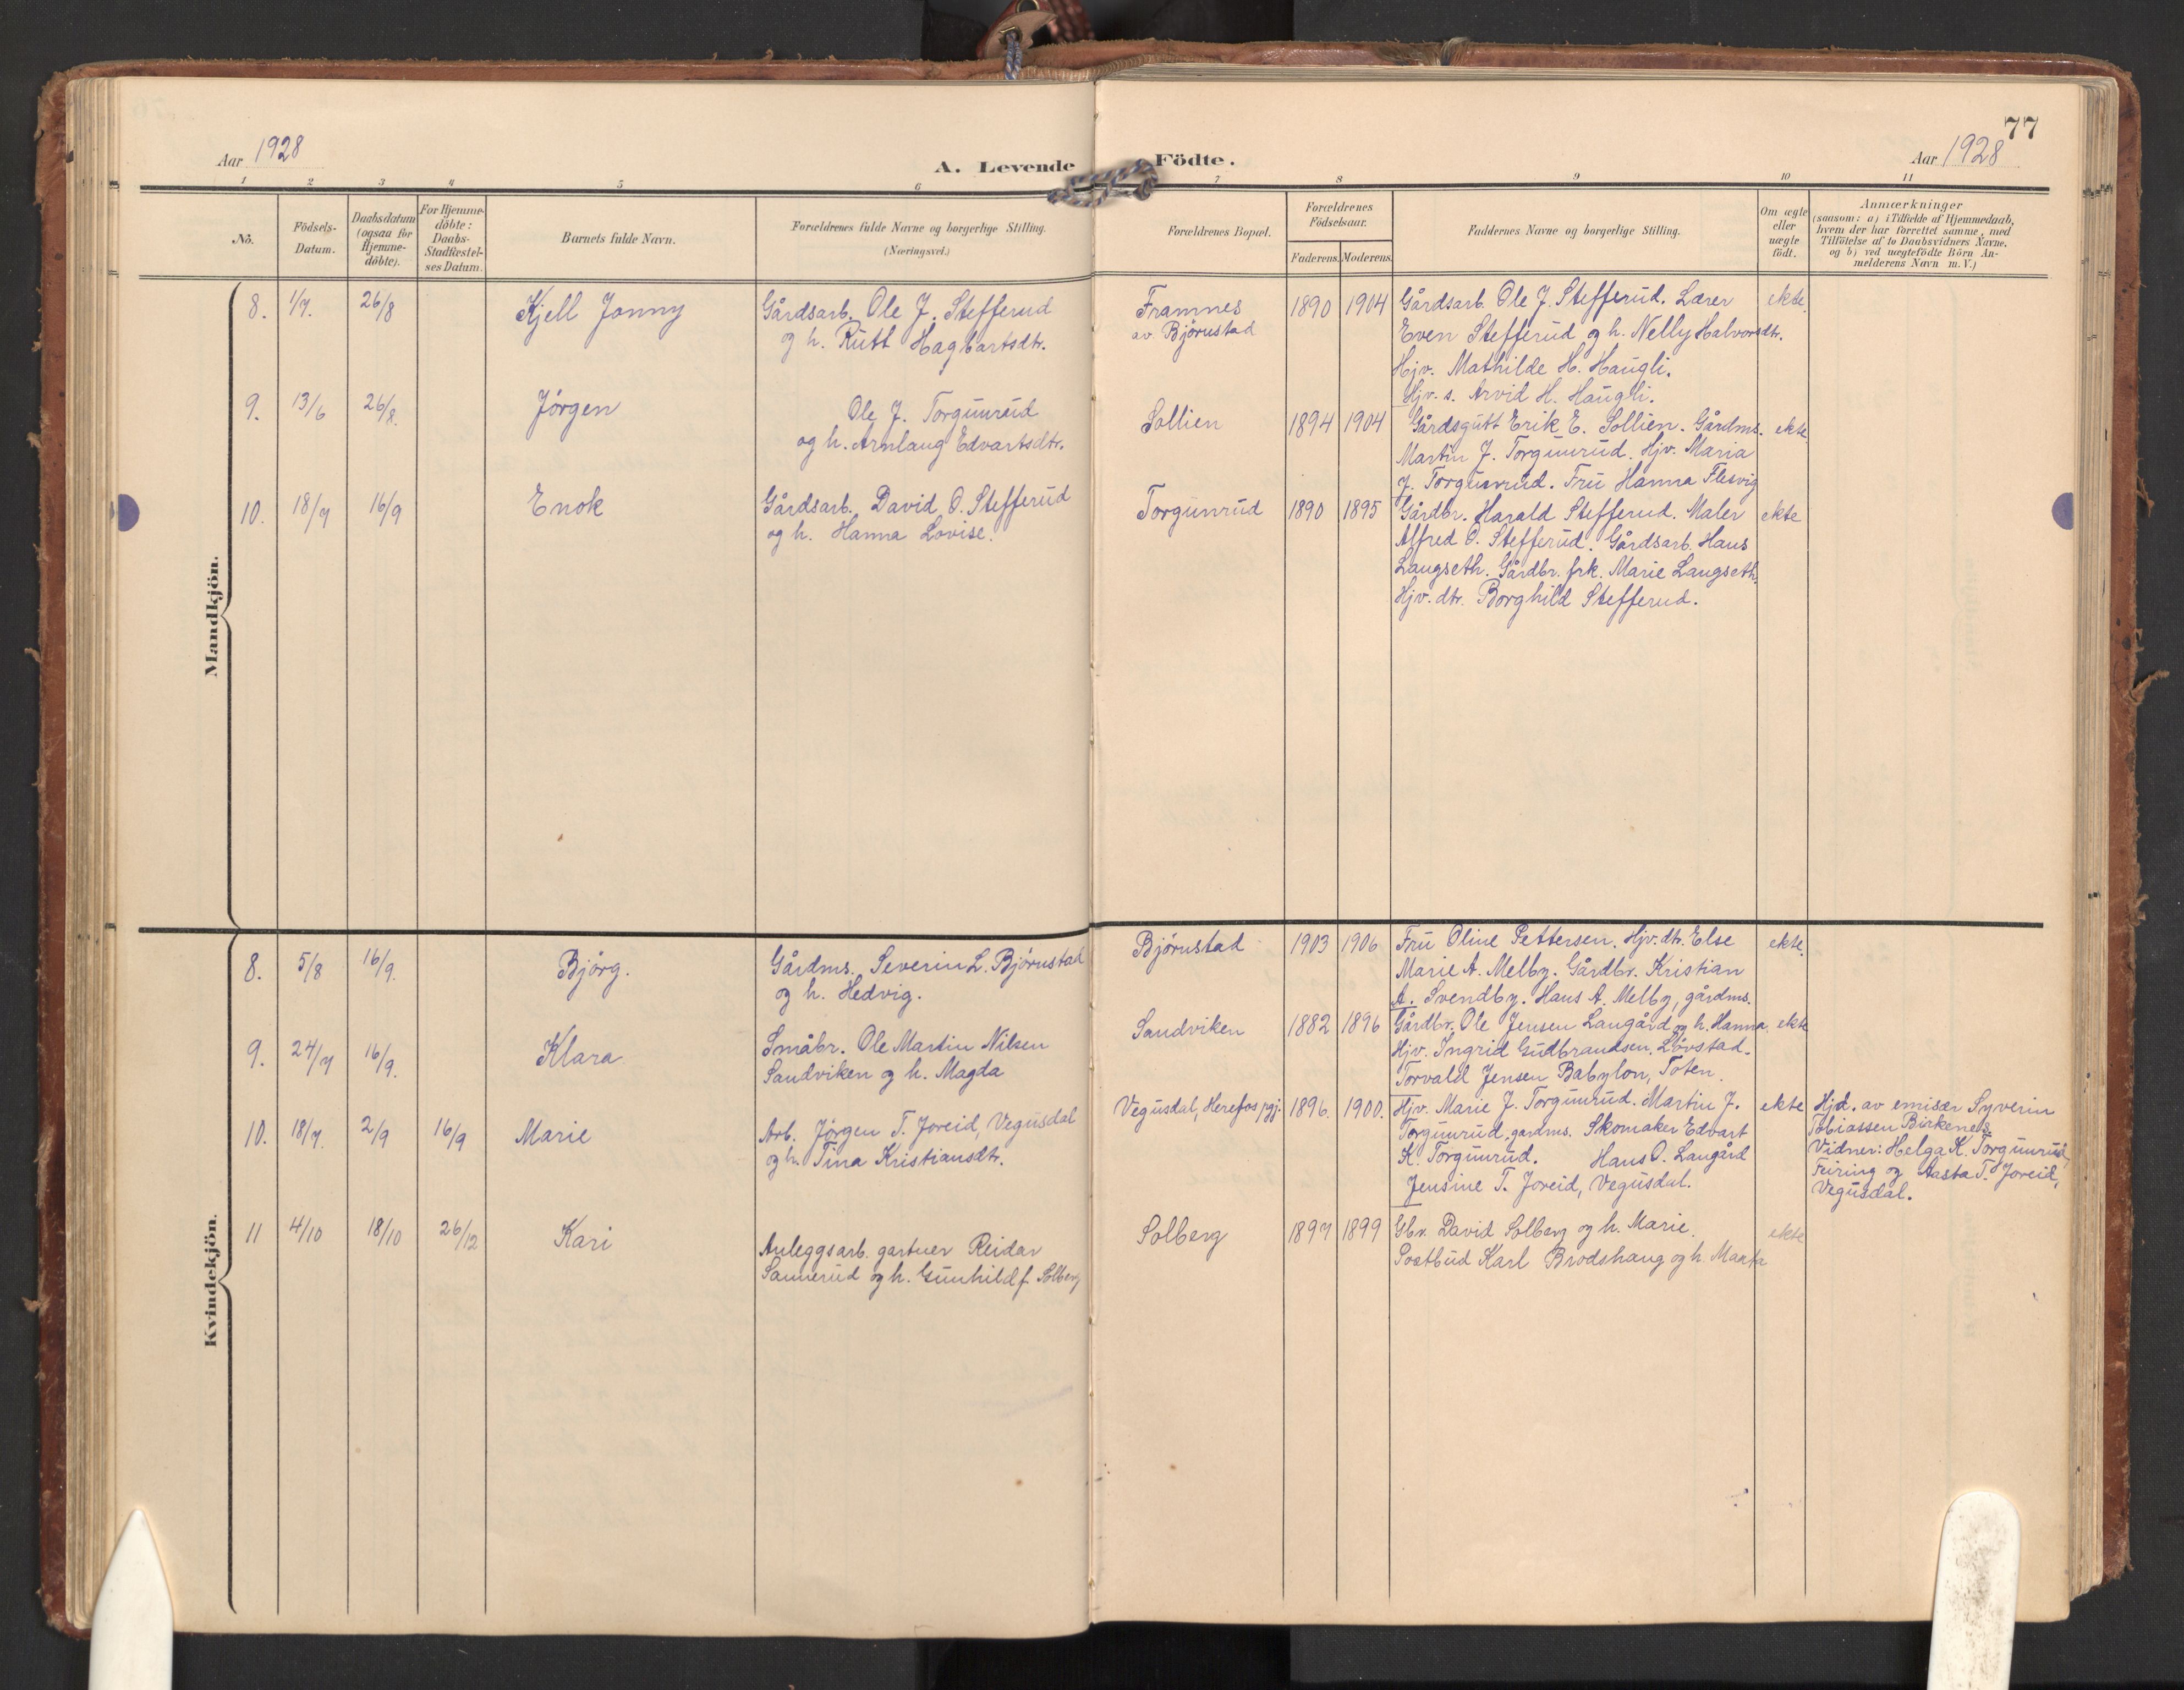 77
Aar 1928
A. Levende Födte.
Aar 1928
1 2 3 4 5 6 7 8 9 10 11
No.
Födsels-
Datum.
Daabsdatum
(ogsaa for
Hjemme-
döbte).
For Hjemme-
döbte:
Daabs-
Stadfæstel-
ses Datum.
Barnets fulde Navn.
Forældrenes fulde Navne og borgerlige Stilling.
(Næringsvei.)
Forældrenes Bopæl.
Forældrenes
Födselsaar.
Faderens. Moderens.
Faddernes Navne og borgerlige Stilling.
Om ægte
eller
uægte
födt.
Anmærkninger
(saasom: a) i Tilfælde af Hjemmedaab,
hvem der har forrettet samme, med
Tilföielse af to Daabsvidners Navne,
og b) ved uægtefödte Börn An-
melderens Navn m. V.)
Mandkjön.
8. 1/7. 26/8 Kjell Jonny
Gårdsarb. Ole J. Stefferud
og h. Rutt Hagbartsdtr.
Framnes
av Bjørnstad
1890 1904
Gårdsarb. Ole J. Stefferud. Lærer
Even Stefferud og h. Nelly Halvorsdtr.
Hjv. Mathilde H. Haugli.
Hjv. s. Arvid H. Haugli.
ekte.
9. 13/6 26/8. Jørgen
Ole J. Torgunrud
og h. Arnlaug Edvartsdtr.
Sollien
1894 1904
Gårdsgutt Erik E. Sollien. Gårdms.
Martin J. Torgunrud. Hjv. Maria
J. Torgunrud. Fru Hanna Flesvig
ekte.
10. 18/7 16/9 Enok
Gårdsarb. David O. Stefferud
og h. Hanna Lovise.
Torgunrud
1890 1895
Gårdbr. Harald Stefferud. Maler
Alfred O. Stefferud. Gårdsarb. Hans
Langseth. Gårdbr. frk. Marie Langseth.
Hjv. dtr. Borghild Stefferud.
ekte
Kvindekjön.
8. 5/8 16/9. Bjørg.
Gårdms. Severin L. Bjørnstad
og h. Hedvig.
Bjørnstad
1903 1906
Fru Oline Pettersen. Hjv. dtr. Else
Marie A. Melby. Gårdbr. Kristian
A. Svendby. Hans A. Melby, gårdms.
ekte.
9. 24/7 16/9. Klara
Småbr. Ole Martin Nilsen
Sandviken og h. Magda
Sandviken
1882 1896
Gårdbr. Ole Jensen Langård og h. Hanna.
Hjv. Ingrid Gudbrandsen. Løvstad.
Torvald Jensen Babylon, Toten.
ekte
10. 18/7. 2/9 16/9 Marie
Arb. Jørgen T. Joreid, Vegusdal
og h. Tina Kristiansdtr.
Vegusdal, Herefos pgj.
1896. 1900.
Hjv. Marie J. Torgunrud. Martin J.
Torgunrud, gardms. Skomaker Edvart
K. Torgunrud. Hans O. Langård
Jensine T. Joreid, Vegusdal.
ekte
Hjd. av emisær Syverin
Tobiassen Birkenes.
Vidner: Helga K. Torgunrud,
Feiring og Aasta T. Joreid,
Vegusdal.
11 4/10 18/10 26/12 Kari
Anleggsarb. gartner Reidar
Sannerud og h. Gunhild f. Solberg
Solberg
1897 1899
Gbr. David Solberg og h. Marie.
Postbud Karl Brodshaug og h. Marta
ekte